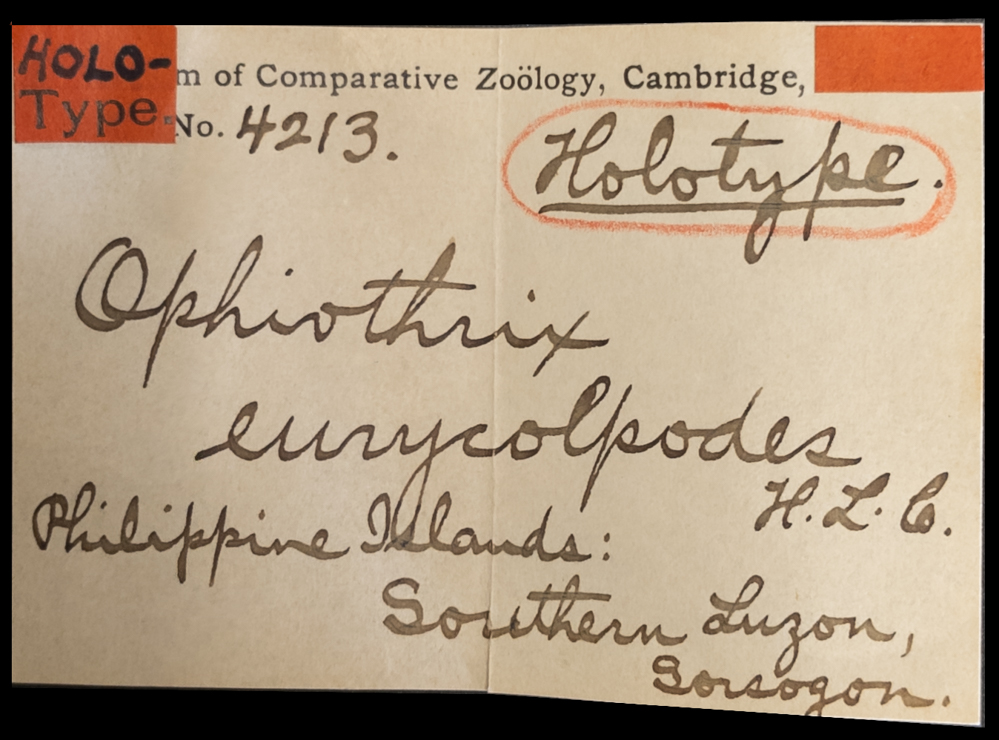 HOLO-
Type.
m of Comparative Zoölogy, Cambridge,
No. 4213.
Holotype.
Ophiothrix
eurycolpodes
H. L. C.
Philippine Islands:
Southern Luzon,
Sorsogon.